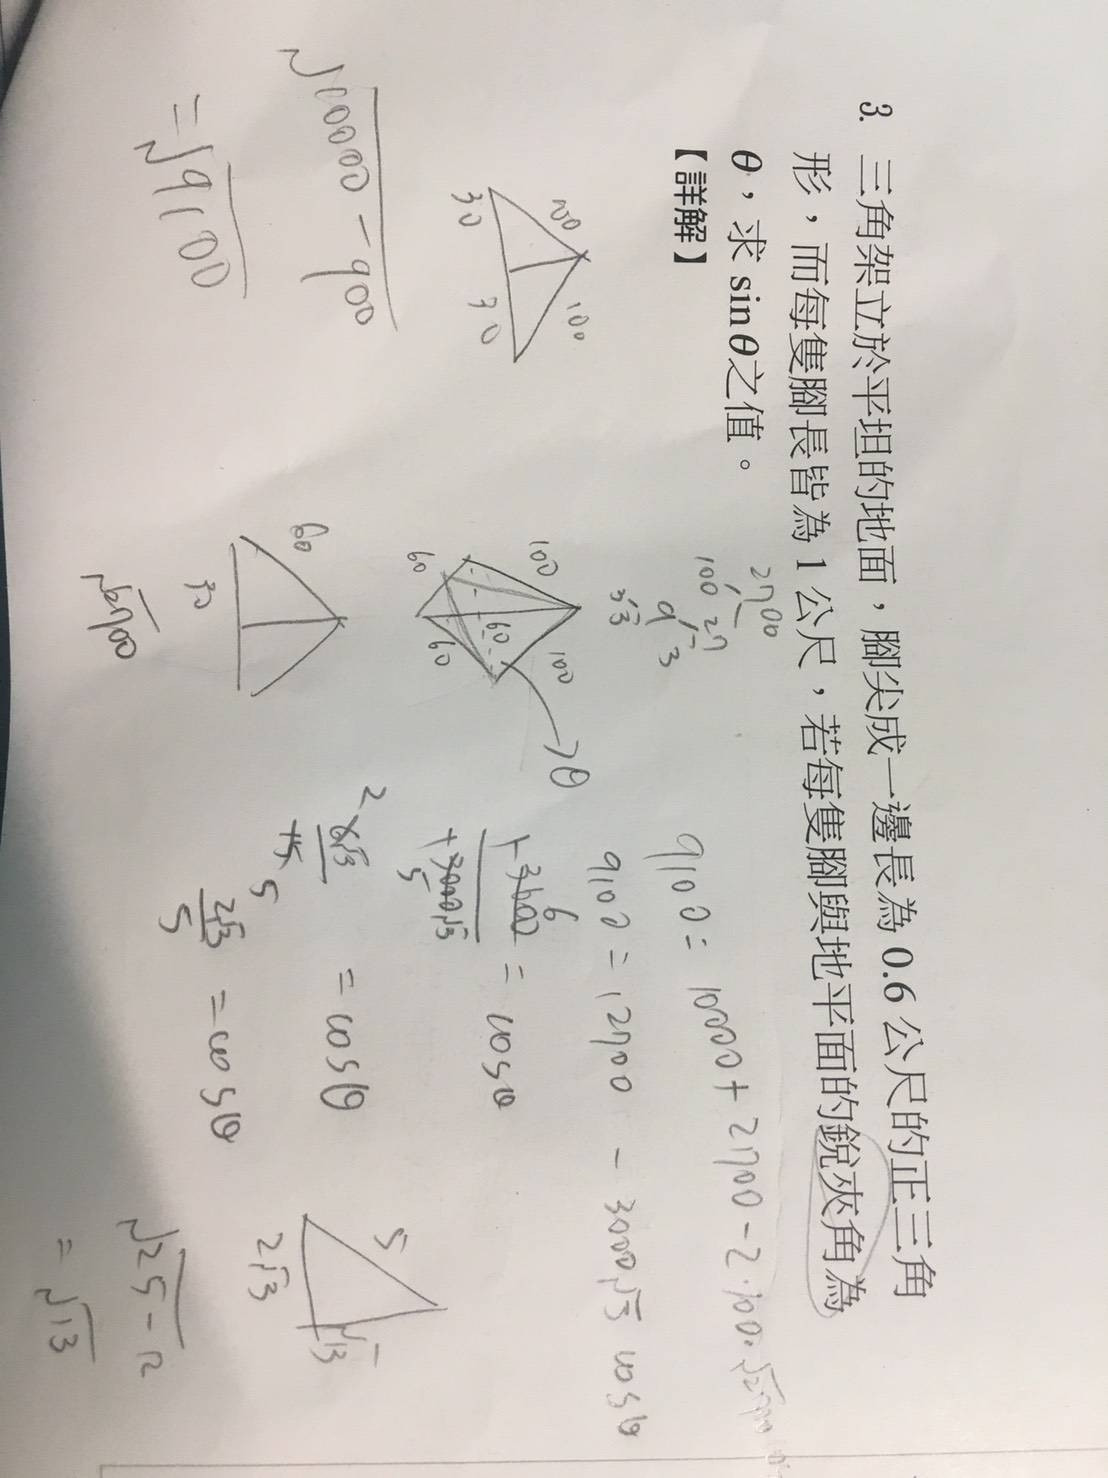 3. 三角架立於平坦的地面，腳尖成一邊長為 0.6 公尺的正三角
形，而每隻腳長皆為 1 公尺，若每隻腳與地平面的銳夾角為
θ，求 sinθ之值。
【詳解】
100
100
30
30
√10000-900
=√9100
2700
100 27
9 3
3√3
100
100
60
60
60
θ
60
30
√2700
9100= 10000+2700-2·100·√2700
9100=12700-3000√3 cosθ
+3600
6
+3000√3
5
=cosθ
2
6√3
15
5
=cosθ
2√3
5
=cosθ
5
2√3
√13
√25-12
=√13